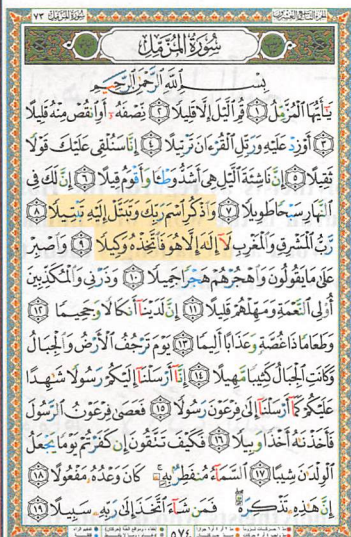 سُورَةُ المُزَّمِّلِ
٧٣
بِسْمِ اللَّهِ الرَّحْمَٰنِ الرَّحِيمِ
يَٰٓأَيُّهَا ٱلْمُزَّمِّلُ ١ قُمِ ٱلَّيْلَ إِلَّا قَلِيلًا ٢ نِّصْفَهُۥٓ أَوِ ٱنقُصْ مِنْهُ قَلِيلًا
٣ أَوْ زِدْ عَلَيْهِ وَرَتِّلِ ٱلْقُرْءَانَ تَرْتِيلًا ٤ إِنَّا سَنُلْقِى عَلَيْكَ قَوْلًا
ثَقِيلًا ٥ إِنَّ نَاشِئَةَ ٱلَّيْلِ هِىَ أَشَدُّ وَطْـًٔا وَأَقْوَمُ قِيلًا ٦ إِنَّ لَكَ فِى
ٱلنَّهَارِ سَبْحًا طَوِيلًا ٧ وَٱذْكُرِ ٱسْمَ رَبِّكَ وَتَبَتَّلْ إِلَيْهِ تَبْتِيلًا ٨
رَّبُّ ٱلْمَشْرِقِ وَٱلْمَغْرِبِ لَآ إِلَٰهَ إِلَّا هُوَ فَٱتَّخِذْهُ وَكِيلًا ٩ وَٱصْبِرْ
عَلَىٰ مَا يَقُولُونَ وَٱهْجُرْهُمْ هَجْرًا جَمِيلًا ١٠ وَذَرْنِى وَٱلْمُكَذِّبِينَ
أُو۟لِى ٱلنَّعْمَةِ وَمَهِّلْهُمْ قَلِيلًا ١١ إِنَّ لَدَيْنَآ أَنكَالًا وَجَحِيمًا ١٢
وَطَعَامًا ذَا غُصَّةٍ وَعَذَابًا أَلِيمًا ١٣ يَوْمَ تَرْجُفُ ٱلْأَرْضُ وَٱلْجِبَالُ
وَكَانَتِ ٱلْجِبَالُ كَثِيبًا مَّهِيلًا ١٤ إِنَّآ أَرْسَلْنَآ إِلَيْكُمْ رَسُولًا شَٰهِدًا
عَلَيْكُمْ كَمَآ أَرْسَلْنَآ إِلَىٰ فِرْعَوْنَ رَسُولًا ١٥ فَعَصَىٰ فِرْعَوْنُ ٱلرَّسُولَ
فَأَخَذْنَٰهُ أَخْذًا وَبِيلًا ١٦ فَكَيْفَ تَتَّقُونَ إِن كَفَرْتُمْ يَوْمًا يَجْعَلُ
ٱلْوِلْدَٰنَ شِيبًا ١٧ ٱلسَّمَآءُ مُنفَطِرٌۢ بِهِۦ كَانَ وَعْدُهُۥ مَفْعُولًا ١٨
إِنَّ هَٰذِهِۦ تَذْكِرَةٌ فَمَن شَآءَ ٱتَّخَذَ إِلَىٰ رَبِّهِۦ سَبِيلًا ١٩
٥٧٤